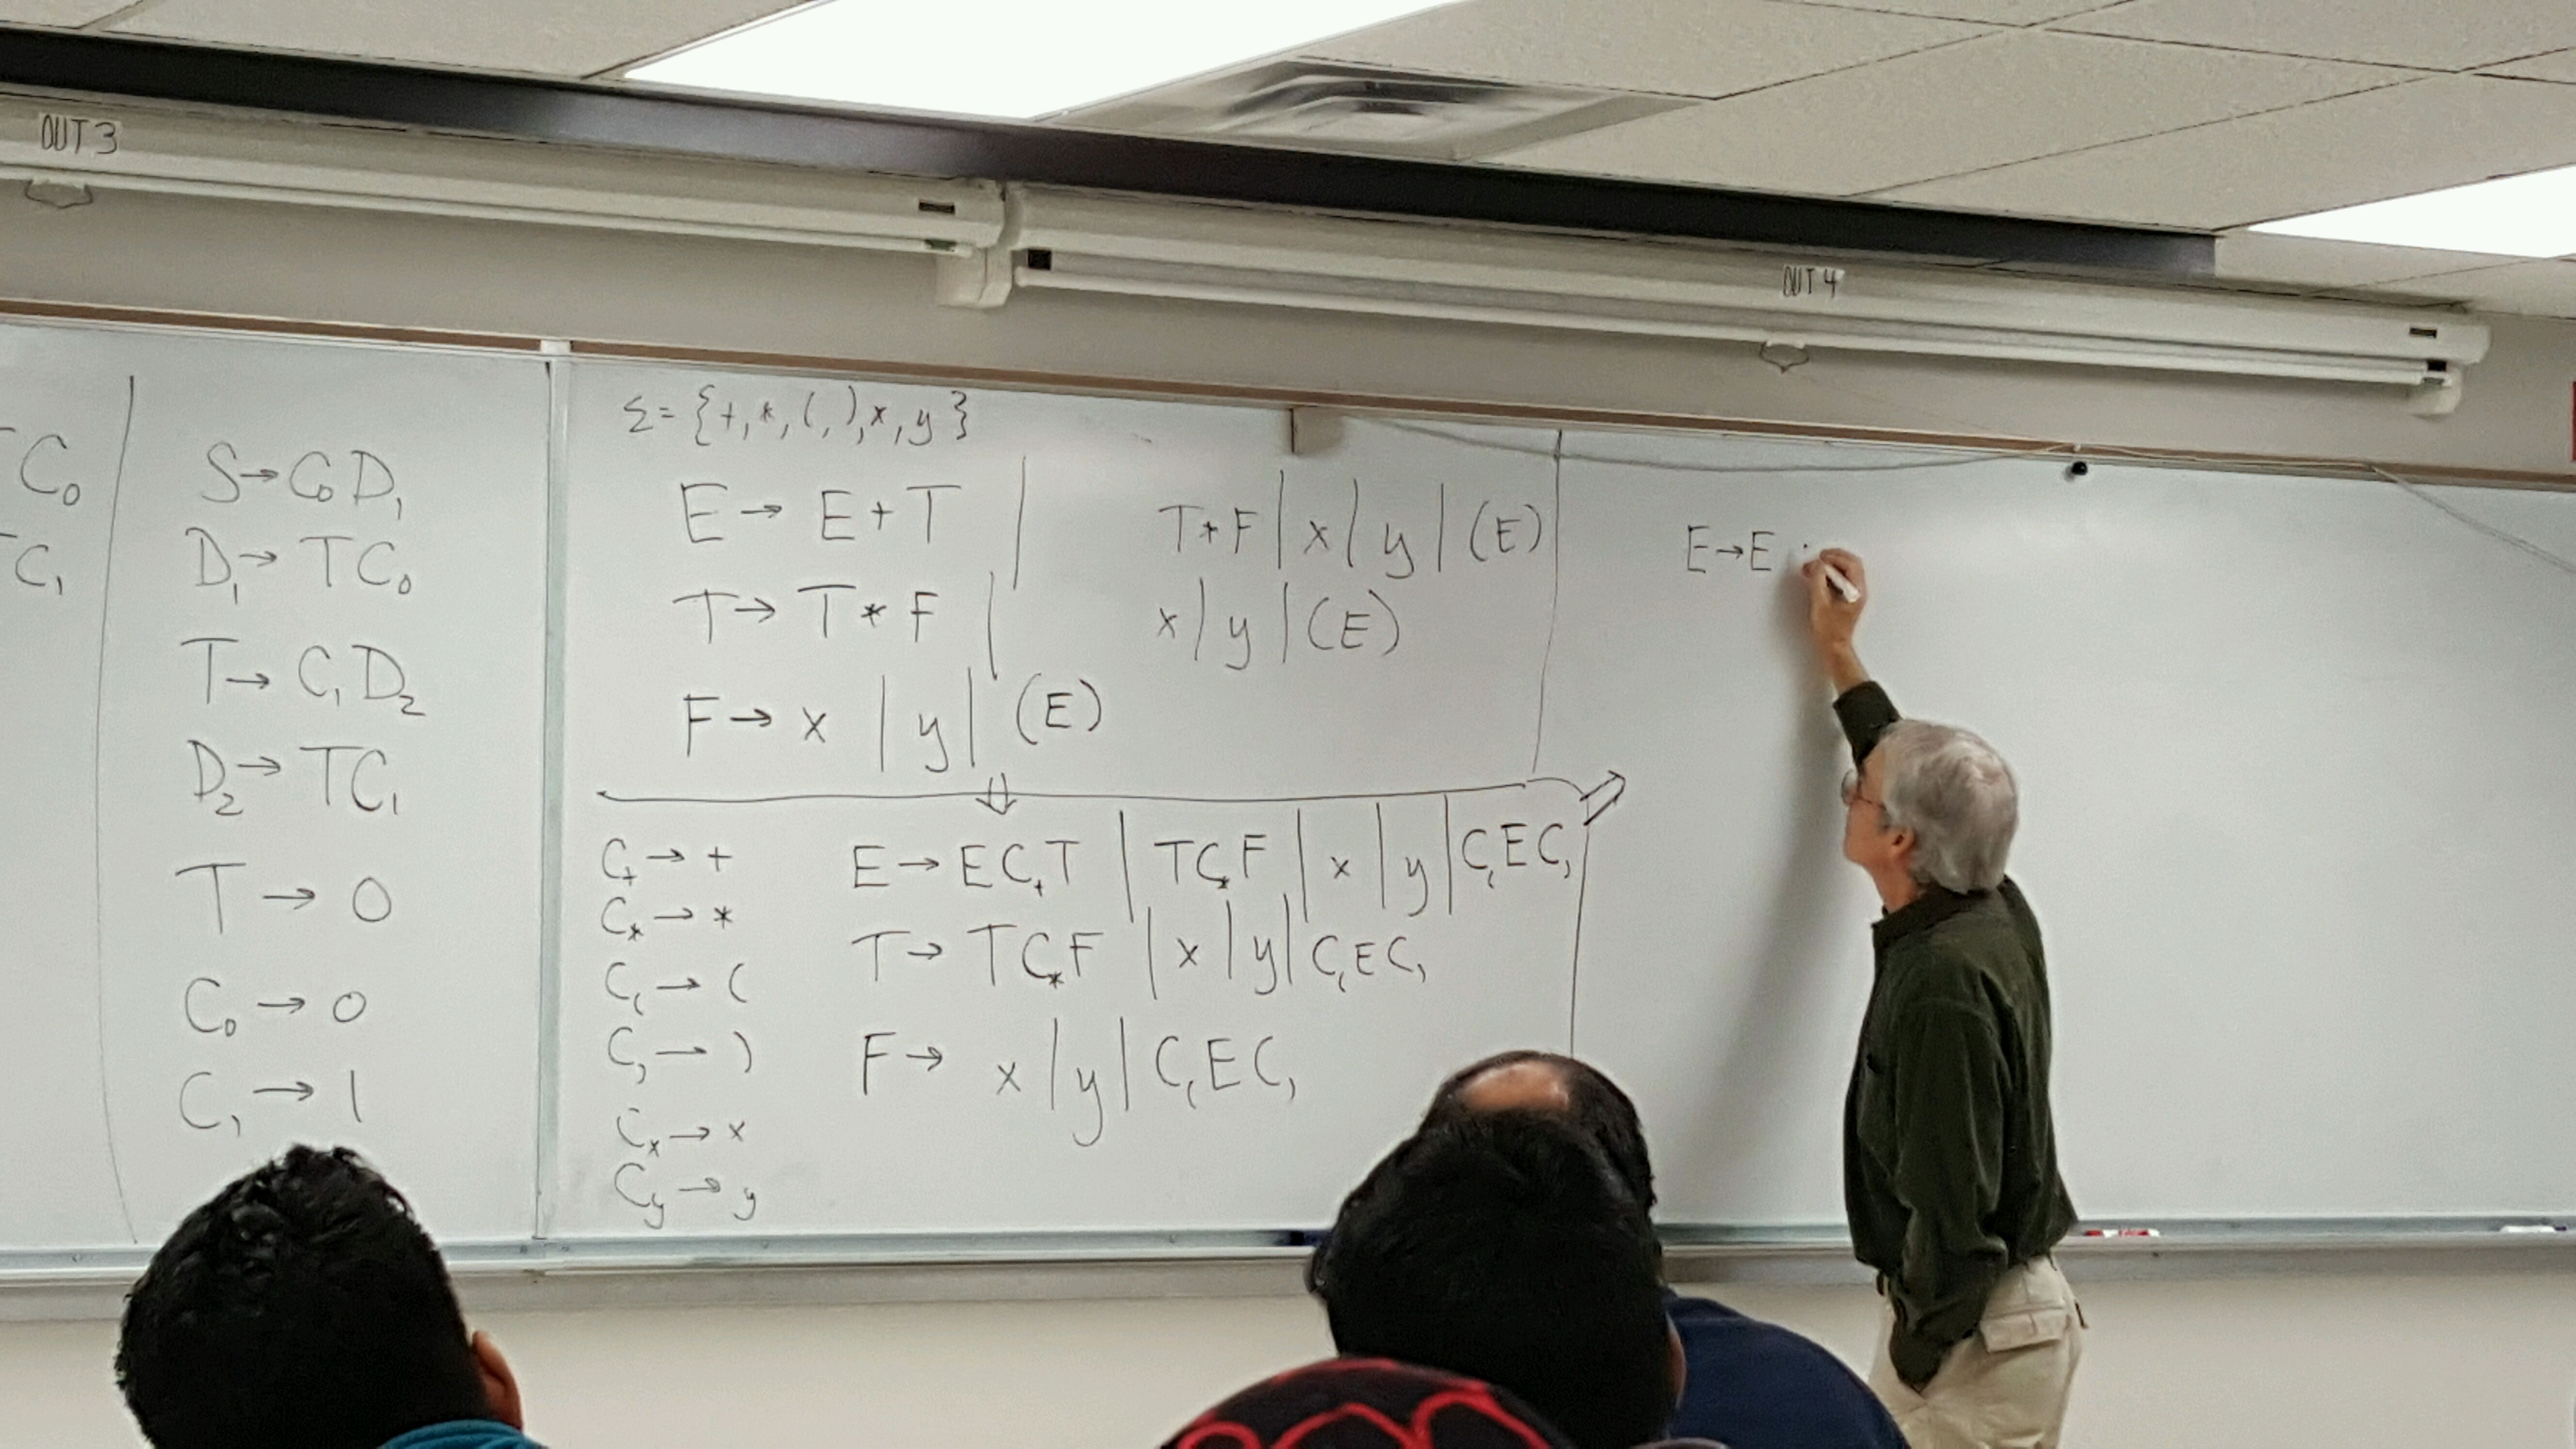 OUT 3
OUT 4
C₀
C₁
S → C₀ D₁
D₁ → T C₀
T → C₁ D₂
D₂ → T C₁
T → 0
C₀ → 0
C₁ → 1
Σ = {+, *, (, ), x, y}
E → E + T | T * F | x | y | (E)
T → T * F | x | y | (E)
F → x | y | (E)
⇓
C₊ → +
C* → *
C₍ → (
C₎ → )
Cx → x
Cy → y
E → E C₊ T | T C* F | x | y | C₍ E C₎
T → T C* F | x | y | C₍ E C₎
F → x | y | C₍ E C₎
E → E